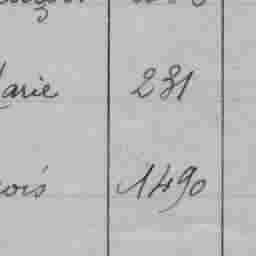 Marie 231
çois 1490